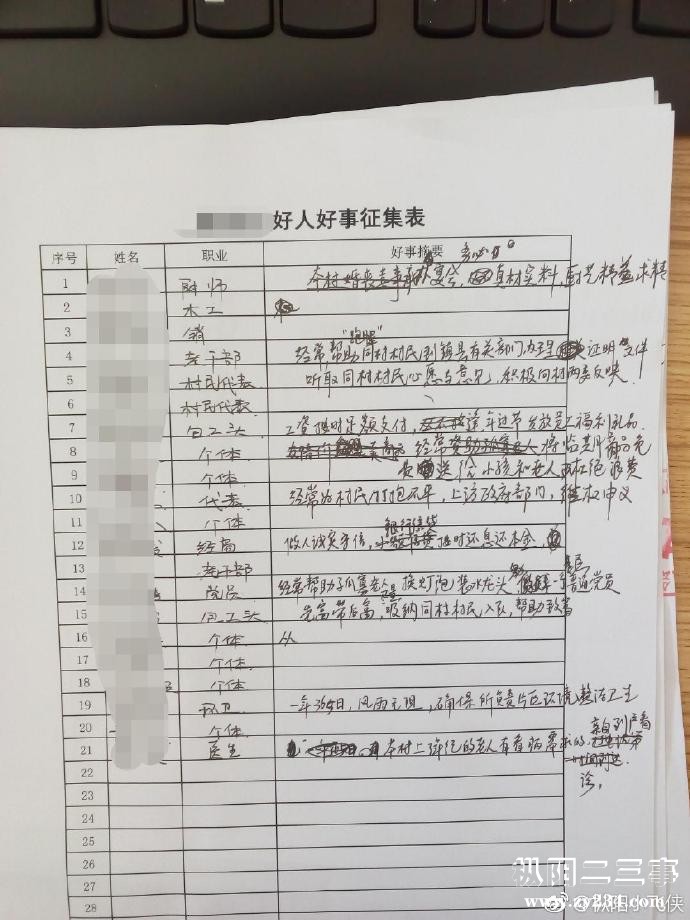 好人好事征集表
序号 姓名 职业 好事摘要
1 厨师 本村婚丧喜事 宴会, 真材实料,厨艺精益求精
2 木工
3 销
"跑腿"
4 老干部 经常帮助同村村民到镇县有关部门办理 证明 文件
5 村民代表 听取同村村民心愿与意见,积极向村两委反映.
6 村民代表
7 包工头 工资按时足额支付, 逢年过节发放员工福利礼品
8 个体 经常 将临期商品免
9 个体 费 送给小孩和老人 杜绝浪费
10 代表 经常为村民打抱不平,上访政府部门,维权申义
11 个体 银行借贷
12 经商 做人诚实守信, 按时还息还本金,
13 老干部
14 党员 经常帮助孤寡老人换灯泡 装水龙头 普通党员
15 包工头 先富带后富,吸纳同村村民入队,帮助致富
16 个体 从
17 个体
18 个体
19 环卫 一年365日,风雨无阻,确保所负责片区环境整洁卫生
20 个体
21 医生 本村上年纪的老人有看病需求的, 亲自到户看
诊,
22
23
24
25
26
27
28
枞阳二三事
www.zy234.com
@枞阳小飞侠